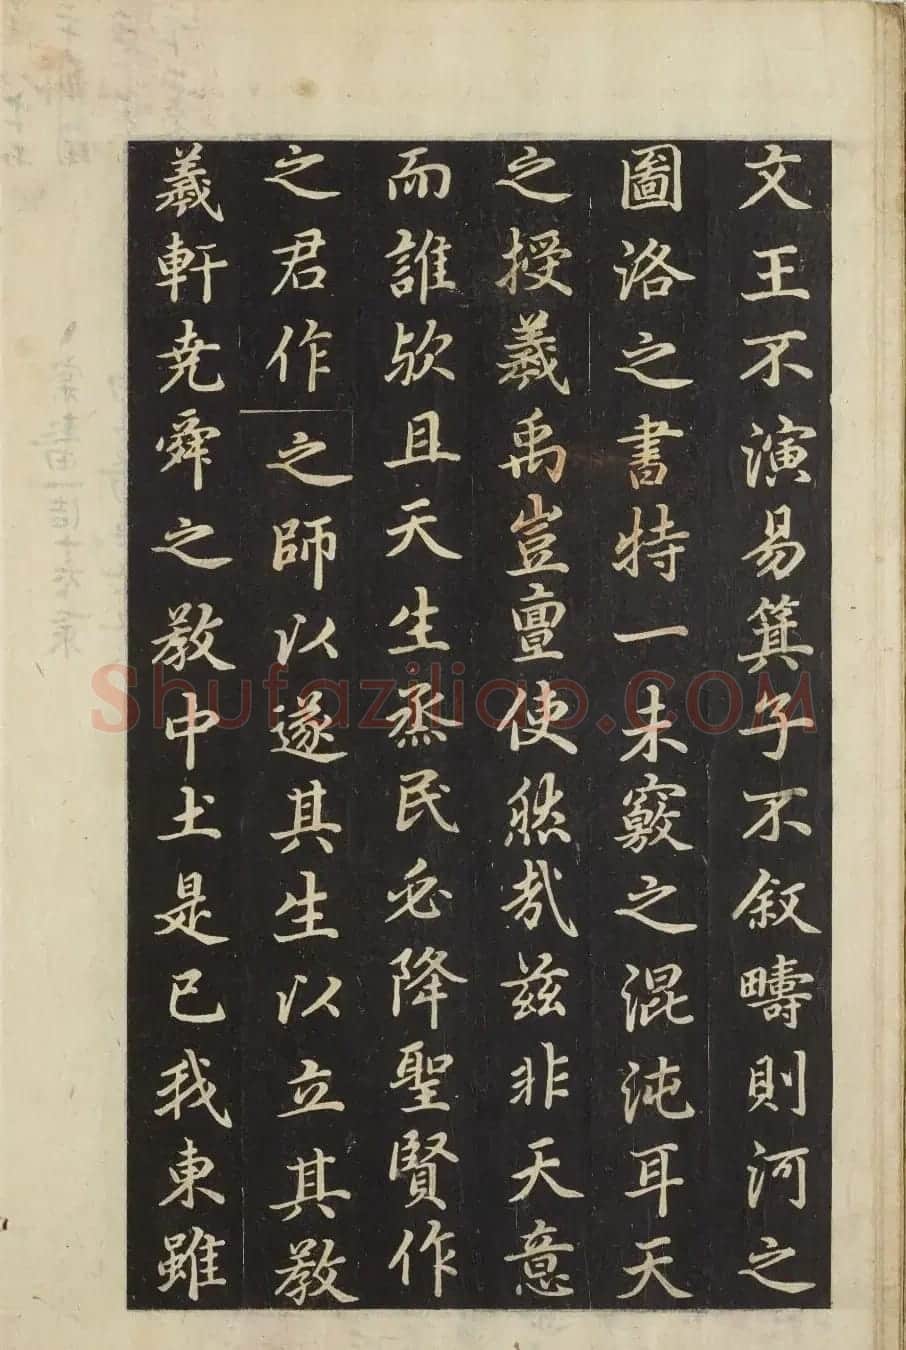 文王不演易箕子不叙疇則河之
圖洛之書特一未竅之混沌耳天
之授羲禹豈亶使然㢤兹非天意
而誰欤且天生烝民必降聖賢作
之君作之師以遂其生以立其教
羲軒尭舜之教中土是已我東雖
Shufaziliao.COM